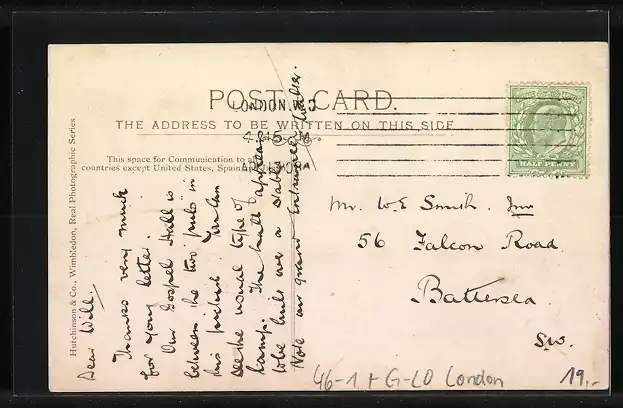 POST CARD.
THE ADDRESS TO BE WRITTEN ON THIS SIDE
LONDON. W
4.15
This space for Communication to
countries except United States, Spain
Hutchinson & Co., Wimbledon, Real Photographic Series
HALF PENNY
Dear Will,
Thanks very much
for your letter.
Our Gospel Hall is
between the two pubs in
this picture.
See the usual type of
lamp. The hall appears
to be built over a stable
Note our grand entrance
Mr. W.E. Smith. Jnr
56 Falcon Road.
Battersea.
SW.
46-1 + G-LD London
19.-